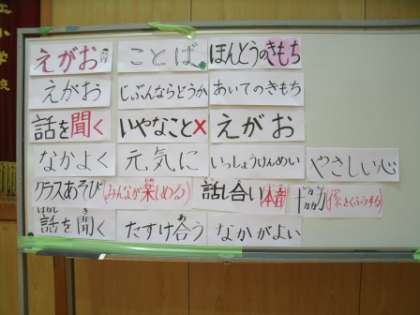 えがお
ことば
ほんとうのきもち
えがお
じぶんならどうか
あいてのきもち
話を聞く
いやなこと×
えがお
なかよく
元気に
いっしょうけんめい
やさしい心
クラスあそび(みんなが楽しめる)
話し合い(本音)
話を聞く
たすけ合う
なかがよい